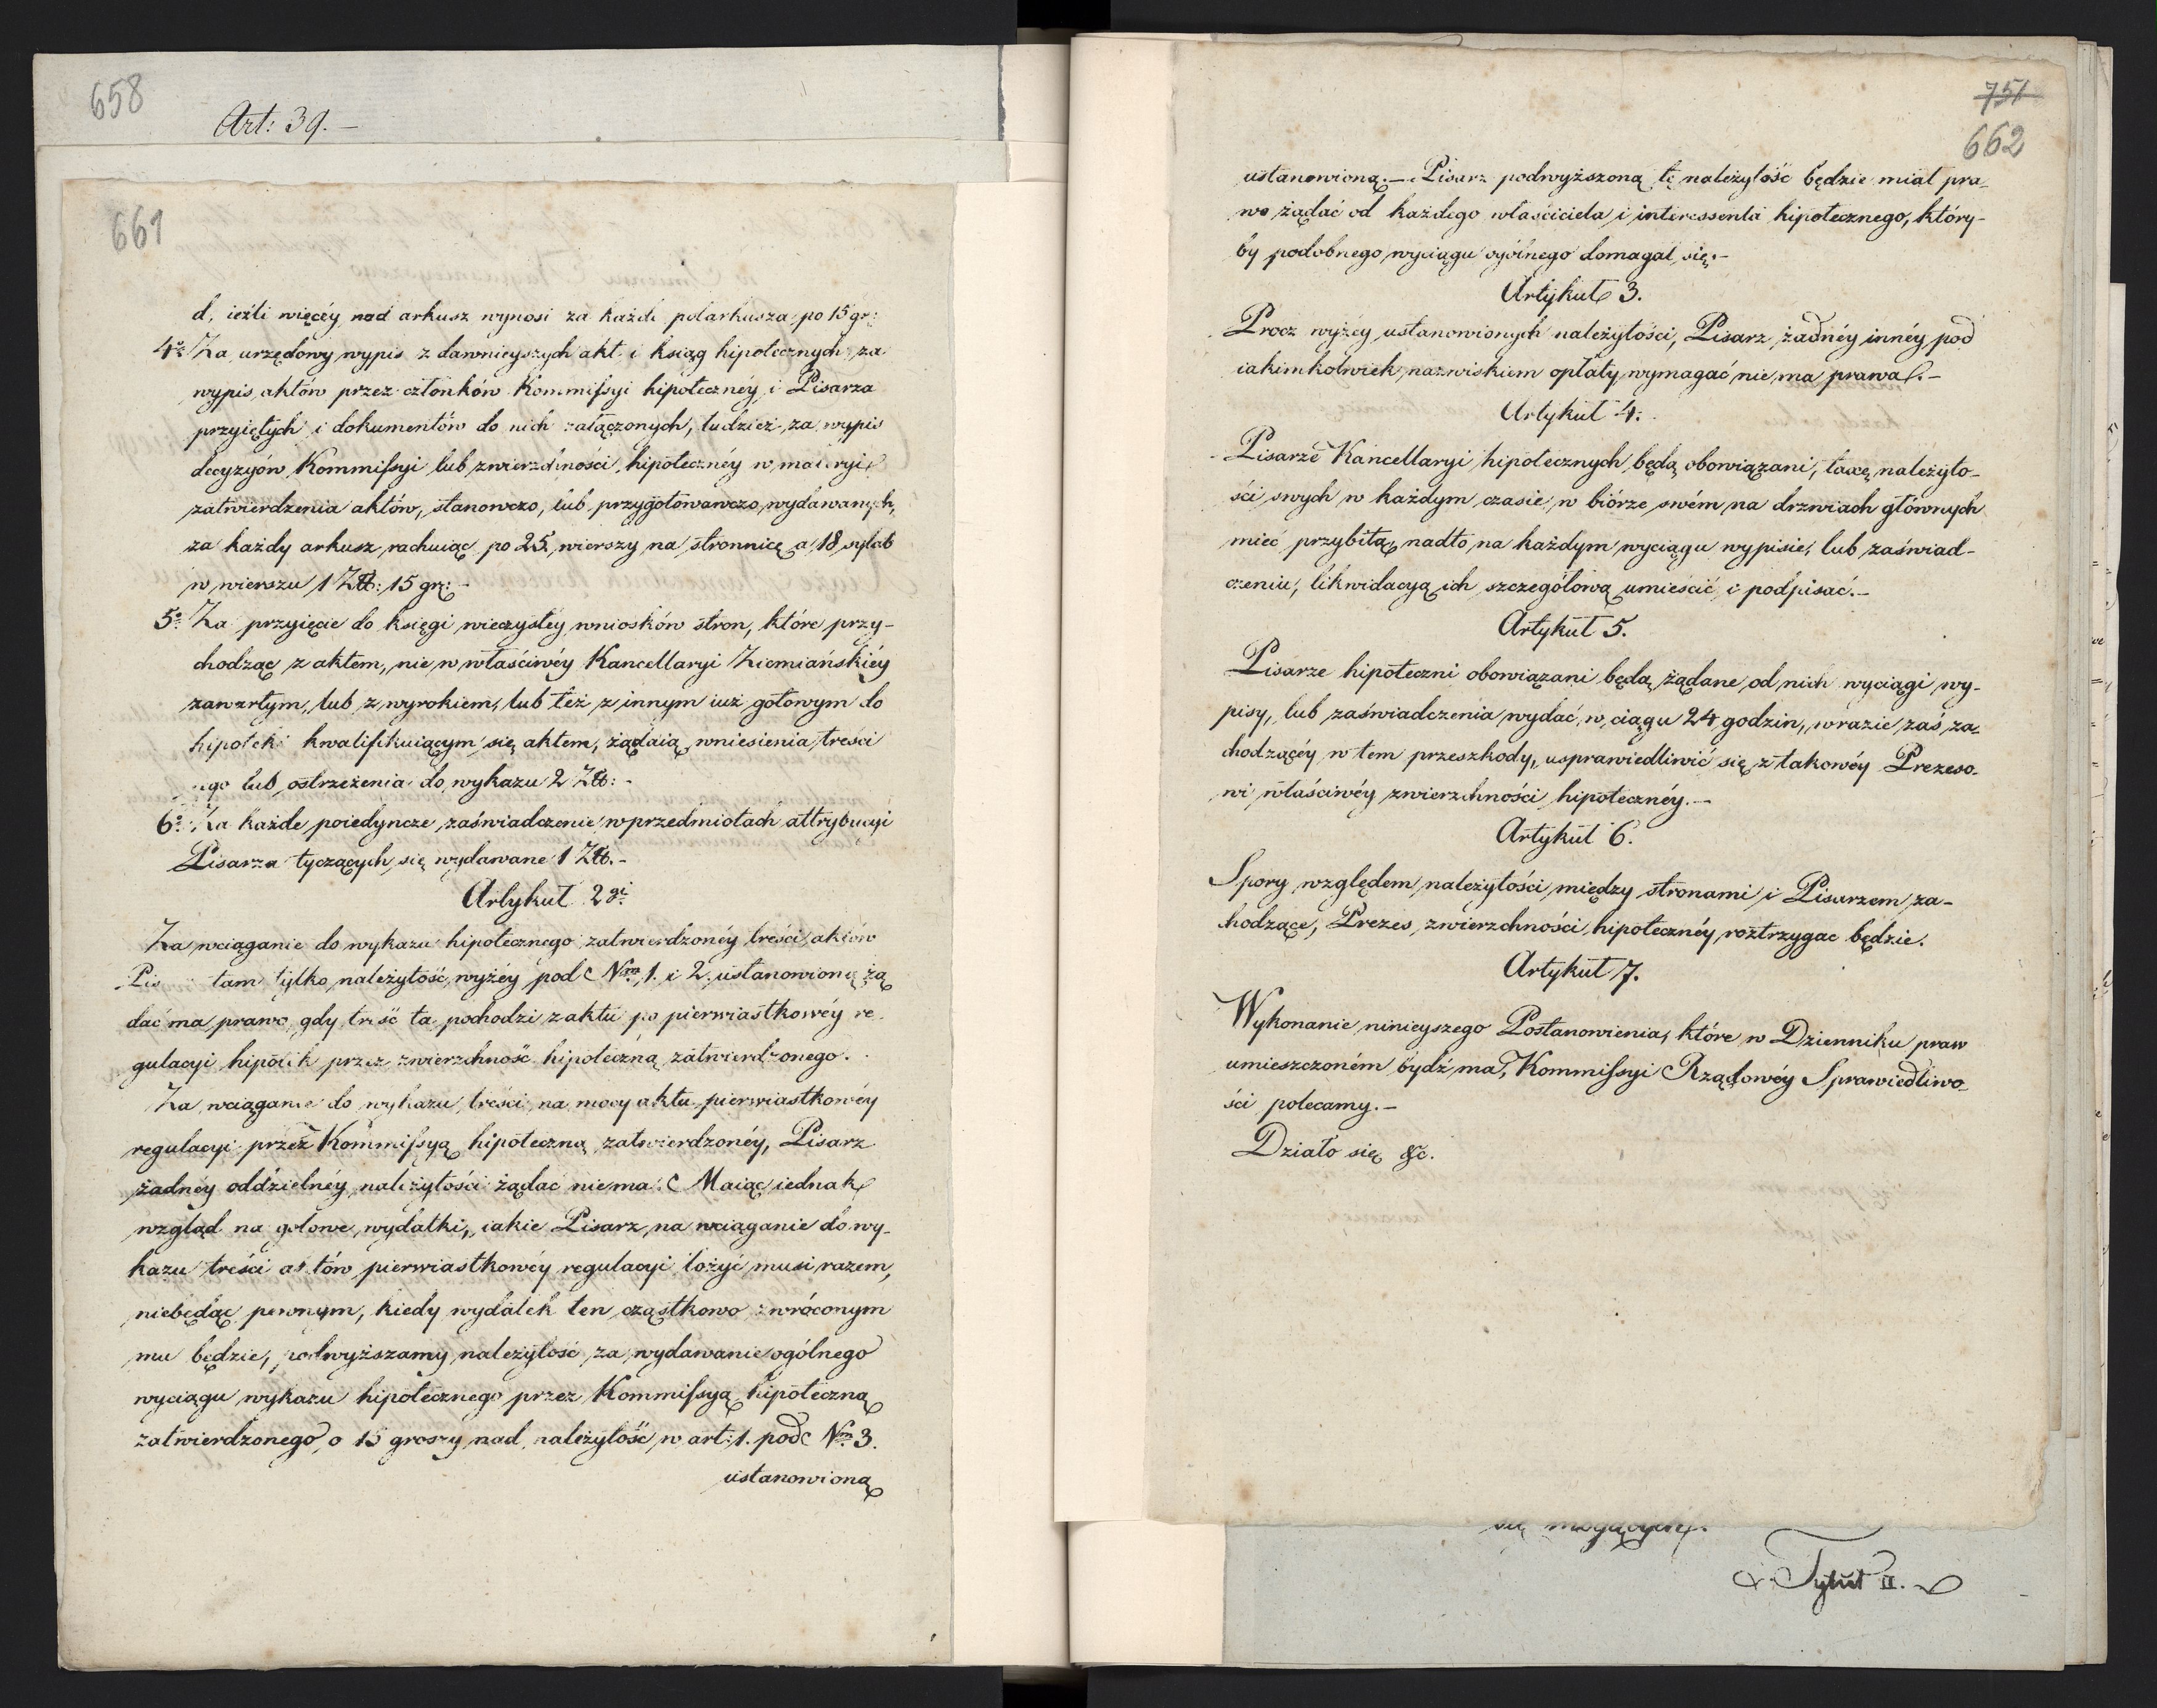 658
Art: 39.—
661
d, ieżli więcéy nad arkusz wynosi za każde pół arkusza po 15 gr:
4o Za urzędowy wypis z dawnieyszych akt i ksiąg hipotecznych, za
wypis aktów przez członków Kommissyi hipotecznéy i Pisarza
przyiętych i dokumentów do nich załączonych, tudzież za wypis
decyzyów Kommissyi lub zwierzchności hipotecznéy w materyi
zatwierdzenia aktów, stanowczo, lub przygotowawczo wydawanych,
za każdy arkusz rachuiąc po 25 wierszy na stronnicę a 18 sylab
w wierszu 1 Zł: 15 gr:-
5o Za przyięcie do księgi wieczystéy wniosków stron, które przy-
chodząc z aktem, nie w właściwéy Kancellaryi Ziemiańskiéy
zawartym, lub z wyrokiem, lub też z innym iuż gotowym do
hipoteki kwalifikuiącym się aktem, żądaią wniesienia treści
ego lub ostrzeżenia do wykazu 2 Zł:-
6o Za każde poiedyncze zaświadczenie w przedmiotach attrybucyi
Pisarza tyczących się wydawane 1 Zł.-
Artykuł 2gi
Za wciąganie do wykazu hipotecznego zatwierdzonéy treści aktów
Pis tam tylko należytość wyżéy pod Nm 1. i 2. ustanowioną żą
dać ma prawo, gdy treść ta pochodzi z aktu po pierwiastkowéy re-
gulacyi hipotek przez zwierzchność hipoteczną zatwierdzonego.
Za wciąganie do wykazu treści na mocy aktu pierwiastkowéy
regulacyi przez Kommissyą hipoteczną zatwierdzonéy, Pisarz
żadnéy oddzielnéy należytości żądać niema. Maiąc iednak
wzgląd na gotowe wydatki, iakie Pisarz na wciąganie do wy-
kazu treści aktów pierwiastkowéy regulacyi łożyć musi razem,
niebędąc pewnym, kiedy wydatek ten cząstkowo zwróconym
mu będzie, podwyższamy należytość za wydawanie ogólnego
wyciągu wykazu hipotecznego przez Kommissyą hipoteczną
zatwierdzonego o 15 groszy nad należytość w art: 1. pod Nm 3.
ustanowioną
751
662
ustanowioną.— Pisarz podwyższoną tę należytość będzie miał pra-
wo żądać od każdego właściciela i interessenta hipotecznego, który-
by podobnego wyciągu ogólnego domagał się.-
Artykuł 3.
Procz wyżéy ustanowionych należytości, Pisarz żadnéy innéy pod
iakimkolwiek nazwiskiem opłaty wymagać nie ma prawa.-
Artykuł 4.
Pisarze Kancellaryi hipotecznych będą obowiązani, taxę należyto-
ści swych w każdym czasie, w biórze swém na drzwiach głównych
mieć przybitą, nadto na każdym wyciągu wypisie, lub zaświad-
czeniu, likwidacyą ich szczegółową umieścić i podpisać.-
Artykuł 5.
Pisarze hipoteczni obowiązani będą żądane od nich wyciągi wy-
pisy, lub zaświadczenia wydać w ciągu 24 godzin, w razie zaś za-
chodzącéy w tem przeszkody, usprawiedliwić się z takowéy Prezeso-
wi właściwéy zwierzchności hipotecznéy.—
Artykuł 6.
Spory względem należytości między stronami i Pisarzem za-
chodzące, Prezes zwierzchności hipotecznéy roztrzygac będzie.
Artykuł 7.
Wykonanie ninieyszego Postanowienia, które w Dzienniku praw
umieszczoném bydź ma, Kommissyi Rządowéy Sprawiedliwo-
ści polecamy.—
Działo się &c.
się mogących.
Tytuł II.